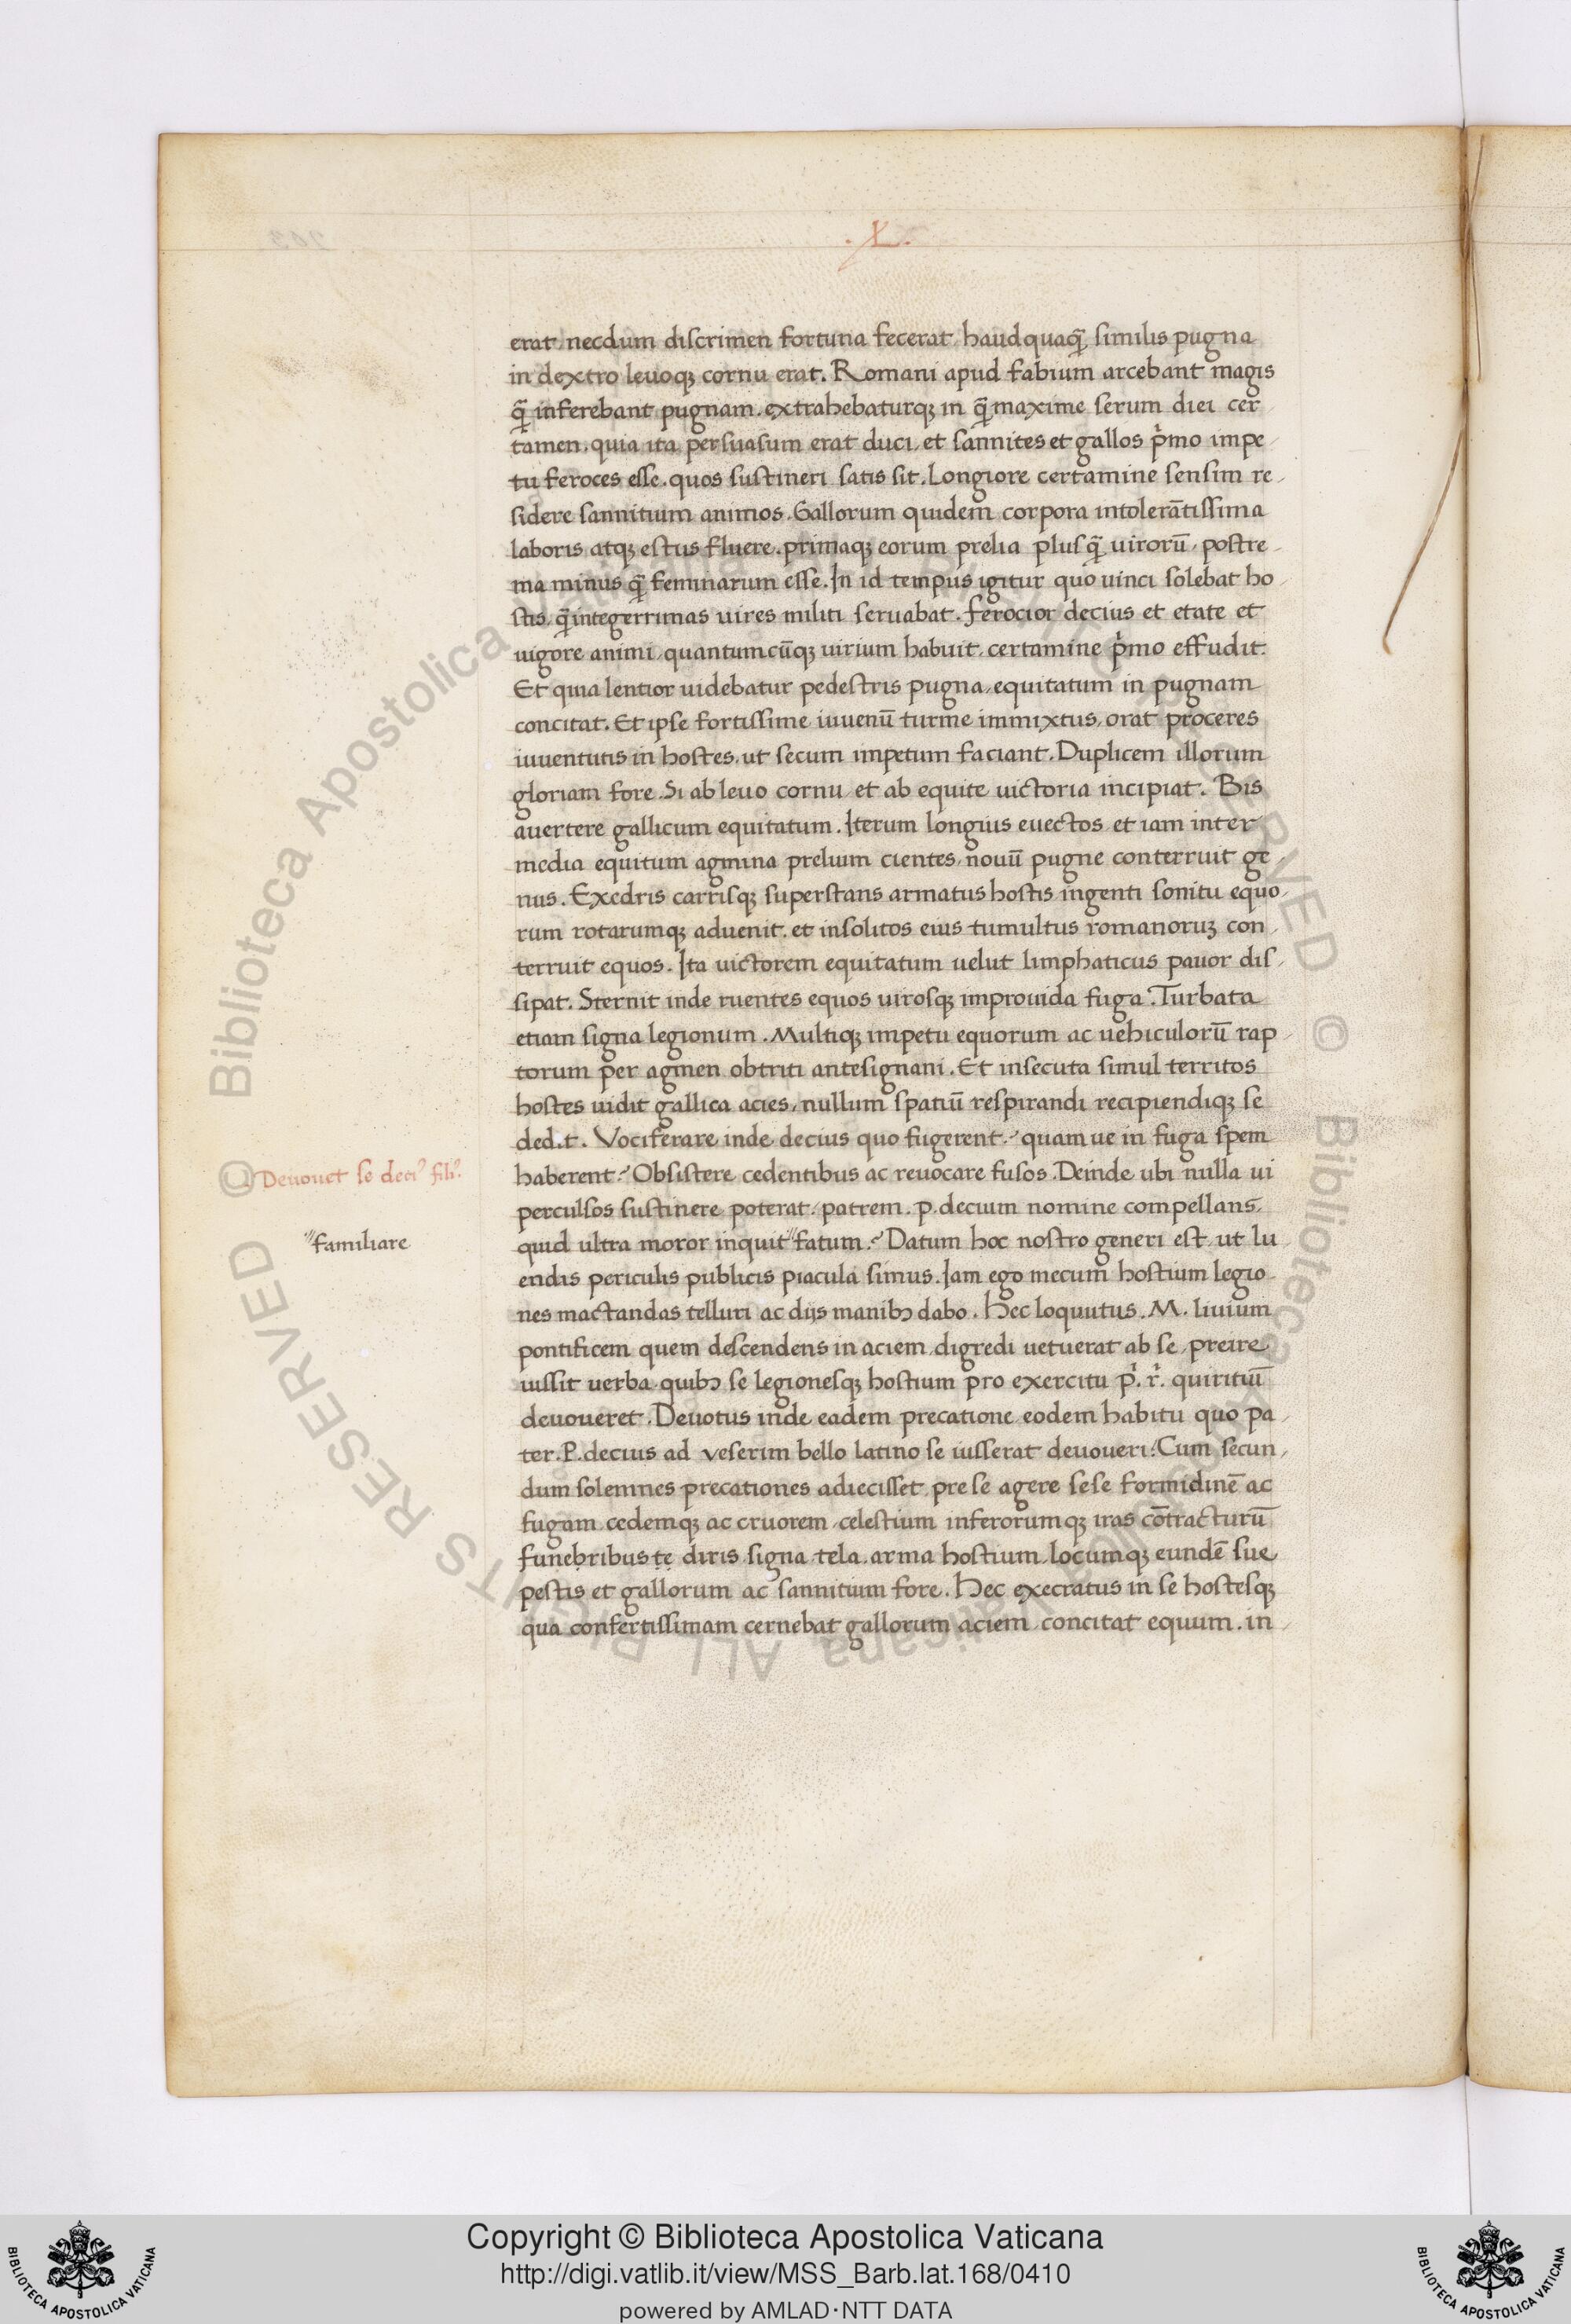 .X.
erat, necdum discrimen fortuna fecerat, haudquaq̃ similis pugna
in dextro leuoq; cornu erat. Romani apud fabium arcebant magis
q̃ inferebant pugnam. extrahebaturq; in q̃ maxime serum diei cer
tamen, quia ita persuasum erat duci, et sannites et gallos pͥmo impe
tu feroces esse. quos sustineri satis sit. Longiore certamine sensim re
sidere sannitium animos. Gallorum quidem corpora intolerātissima
laboris atq; estus fluere. primaq; eorum prelia plusq̃ uirorū, postre
ma minus q̃ feminarum esse. In id tempus igitur quo uinci solebat ho
stis, q̃integerrimas uires militi seruabat. ferocior decius et etate et
uigore animi, quantumcūq; uirium habuit, certamine pͥmo effudit.
Et quia lentior uidebatur pedestris pugna, equitatum in pugnam
concitat. Et ipse fortissime iuuenū turme immixtus, orat proceres
iuuentutis in hostes, ut secum impetum faciant. Duplicem illorum
gloriam fore. Si ab leuo cornu et ab equite uictoria incipiat. Bis
auertere gallicum equitatum. Iterum longius euectos et iam inter
media equitum agmina prelium cientes, nouū pugne conterruit ge
nus. Exedris carrisq; superstans armatus hostis ingenti sonitu equo
rum rotarumq; aduenit. et insolitos eius tumultus romanoruz con
terruit equos. Ita uictorem equitatum uelut limphaticus pauor dis
sipat. Sternit inde ruentes equos uirosq; improuida fuga. Turbata
etiam signa legionum. Multiq; impetu equorum ac uehiculorū rap
torum per agmen obtriti antesignani. Et insecuta simul territos
hostes uidit gallica acies, nullum spatiū respirandi recipiendiq; se
ded.t. Vociferare inde decius quo fugerent? quam ue in fuga spem
haberent? Obsistere cedentibus ac reuocare fusos. Deinde ubi nulla ui
perculsos sustinere poterat, patrem .p. decium nomine compellans,
quid ultra moror inquit "fatum? Datum hoc nostro generi est, ut lu
endis periculis publicis piacula simus. Iam ego mecum hostium legio
nes mactandas telluri ac dijs manibꝫ dabo. Hec loquutus. M. liuium
pontificem quem descendens in aciem, digredi uetuerat ab se, preire
iussit uerba, quibꝫ se legionesq; hostium pro exercitu pͥ. rͥ. quiritiū
deuoueret. Deuotus inde eadem precatione eodem habitu quo pa
ter .P. decius ad veserim bello latino se iusserat deuoueri. Cum secun
dum solemnes precationes adiecisset, pre se agere sese formidinē ac
fugam cedemq; ac cruorem, celestium inferorumq; iras cōtracturū
funebribus te diris signa, tela, arma hostium, locumq; eundē sue
pestis et gallorum ac sannitium fore. Hec execratus in se hostesq;
qua confertissimam cernebat gallorum aciem, concitat equum. in
Deuouet se deciꝰ filiꝰ.
"familiare
Copyright © Biblioteca Apostolica Vaticana
http://digi.vatlib.it/view/MSS_Barb.lat.168/0410
powered by AMLAD·NTT DATA
BIBLIOTECA APOSTOLICA VATICANA
BIBLIOTECA APOSTOLICA VATICANA
© Biblioteca Apostolica Vaticana ALL RIGHTS RESERVED